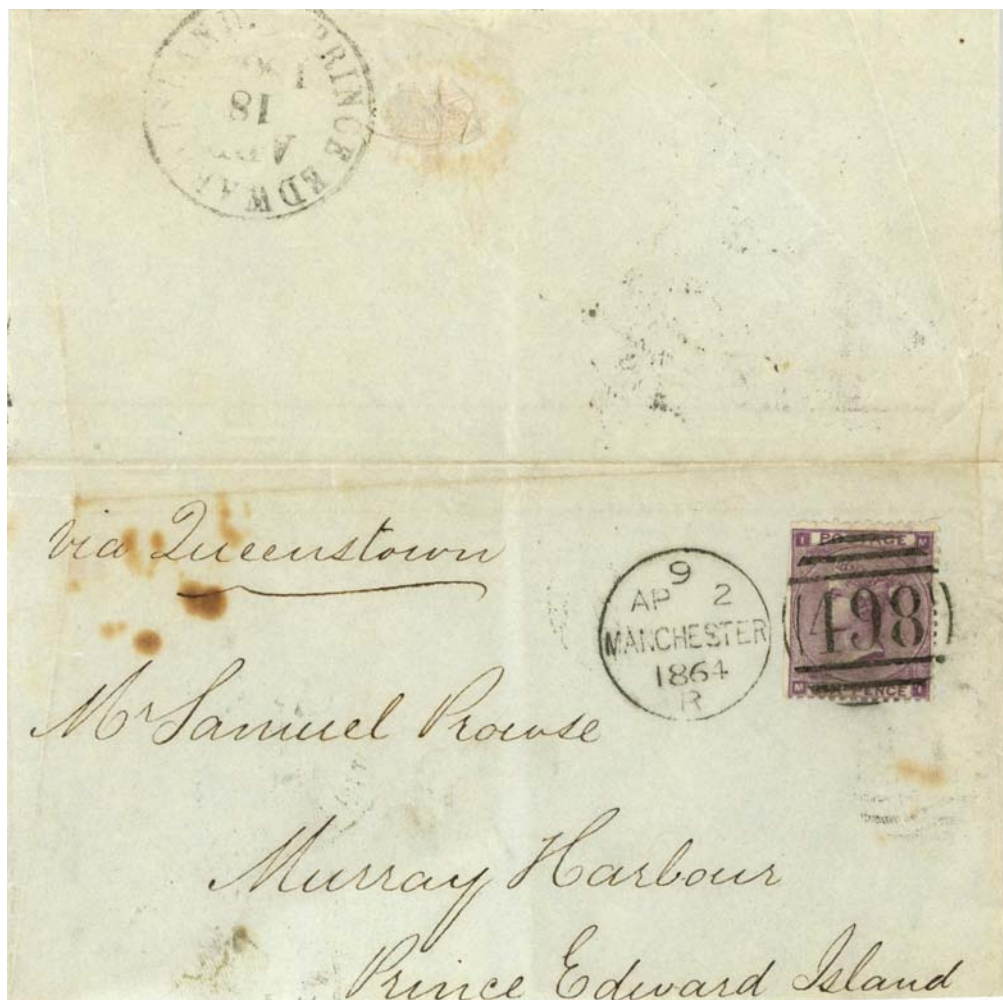 PRINCE EDWA
18
via Queenstown
9
AP 2
MANCHESTER
1864
R
I POSTAGE M
498
M PENCE I
Mr Samuel Prowse
Murray Harbour
Prince Edward Island